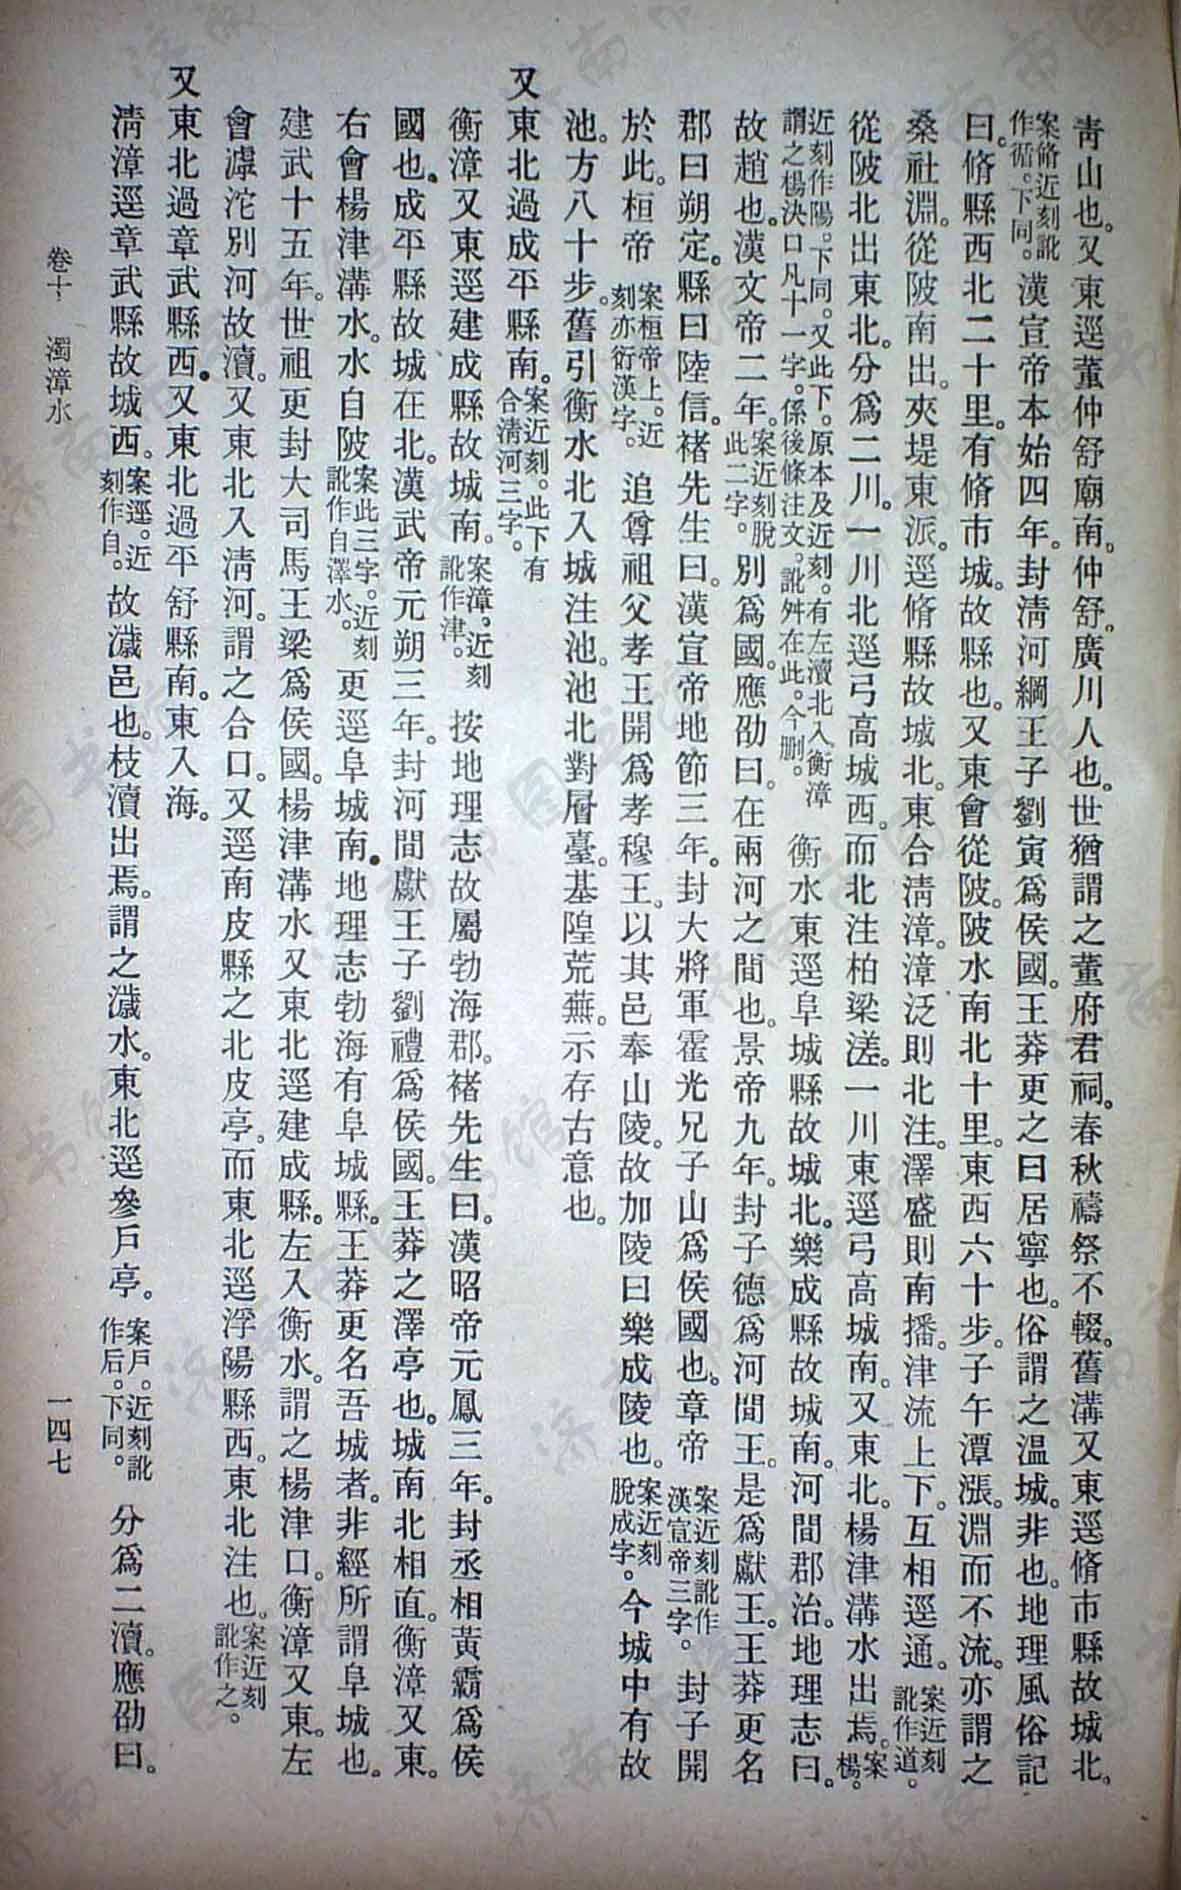 青山也。又東逕董仲舒廟南。仲舒。廣川人也。世猶謂之董府君祠。春秋禱祭不輟。舊溝又東逕脩市縣故城北。
案脩近刻訛作循。下同。漢宣帝本始四年。封清河綱王子劉寅爲侯國。王莽更之曰居寧也。俗謂之温城。非也。地理風俗記
曰。脩縣西北二十里。有脩市城。故縣也。又東會從陂。陂水南北十里。東西六十步。子午潭漲。淵而不流。亦謂之
桑社淵。從陂南出。夾堤東派。逕脩縣故城北。東合清漳。漳泛則北注。澤盛則南播。津流上下。互相逕通。案近刻訛作道。
從陂北出東北。分爲二川。一川北逕弓高城西。而北注柏梁溠。一川東逕弓高城南。又東北。楊津溝水出焉。案楊。
近刻作陽。下同。又此下。原本及近刻。有左瀆北入衡漳謂之楊決口凡十一字。係後條注文。訛舛在此。今刪。衡水東逕阜城縣故城北。樂成縣故城南。河間郡治。地理志曰。
故趙也。漢文帝二年。案近刻脫此二字。別爲國。應劭曰。在兩河之間也。景帝九年。封子德爲河間王。是爲獻王。王莽更名
郡曰朔定。縣曰陸信。褚先生曰。漢宣帝地節三年。封大將軍霍光兄子山爲侯國也。章帝案近刻訛作漢宣帝三字。封子開
於此。桓帝案桓帝上。近刻亦衍漢字。追尊祖父孝王開爲孝穆王。以其邑奉山陵。故加陵曰樂成陵也。案近刻脫成字。今城中有故
池。方八十步。舊引衡水北入城注池。池北對層臺。基隍荒蕪。示存古意也。
又東北過成平縣南。案近刻。此下有合清河三字。
衡漳又東逕建成縣故城南。案漳。近刻訛作津。按地理志故屬勃海郡。褚先生曰。漢昭帝元鳳三年。封丞相黃霸爲侯
國也。成平縣故城在北。漢武帝元朔三年。封河間獻王子劉禮爲侯國。王莽之澤亭也。城南北相直。衡漳又東。
右會楊津溝水。水自陂案此三字。近刻訛作自澤水。更逕阜城南。地理志勃海有阜城縣。王莽更名吾城者。非經所謂阜城也。
建武十五年。世祖更封大司馬王梁爲侯國。楊津溝水又東北逕建成縣。左入衡水。謂之楊津口。衡漳又東。左
會滹沱別河故瀆。又東北入清河。謂之合口。又逕南皮縣之北皮亭。而東北逕浮陽縣西。東北注也。案近刻訛作之。
又東北過章武縣西。又東北過平舒縣南。東入海。
清漳逕章武縣故城西。案逕。近刻作自。故濊邑也。枝瀆出焉。謂之濊水。東北逕參戶亭。案戶。近刻訛作后。下同。分爲二瀆。應劭曰。
卷十 濁漳水
一四七